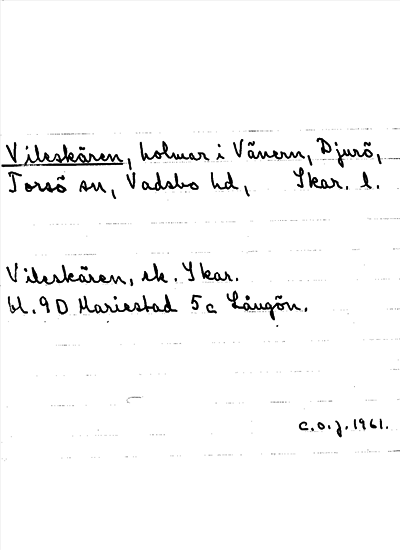 Vileskären, holmar i Vänern, Djurö,
Torsö sn, Vadsbo hd, Skar. l.
Vileskären, ek. Skar.
bl. 9D Mariestad 5c Långön.
C.O.J. 1961.